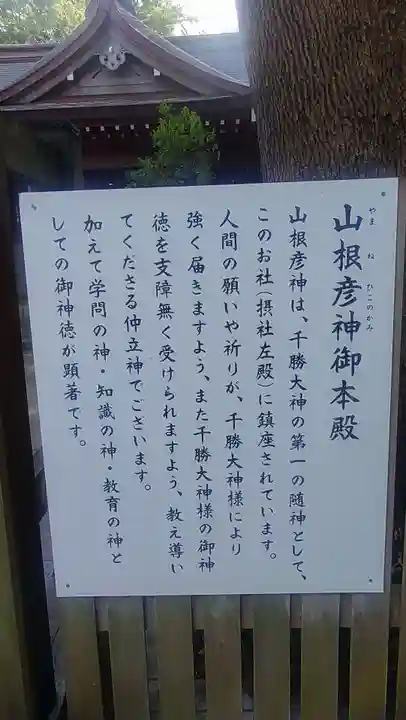 山根彦神御本殿
やま ね ひこのかみ
山根彦神は、千勝大神の第一の随神として、
このお社(摂社左殿)に鎮座されています。
人間の願いや祈りが、千勝大神様により
強く届きますよう、また千勝大神様の御神
徳を支障無く受けられますよう、教え導い
てくださる仲立神でございます。
加えて学問の神・知識の神・教育の神と
しての御神徳が顕著です。